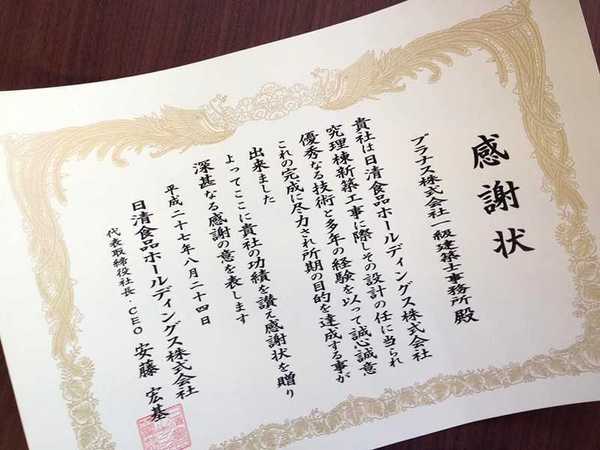 感謝状
プラナス株式会社一級建築士事務所殿
貴社は日清食品ホールディングス株式会社
究理棟新築工事に際しその設計の任に当られ
優秀なる技術と多年の経験を以って誠心誠意
これの完成に尽力され所期の目的を達成する事が
出来ました
よってここに貴社の功績を讃え感謝状を贈り
深甚なる感謝の意を表します
平成二十七年八月二十四日
日清食品ホールディングス株式会社
代表取締役社長・CEO 安藤宏基